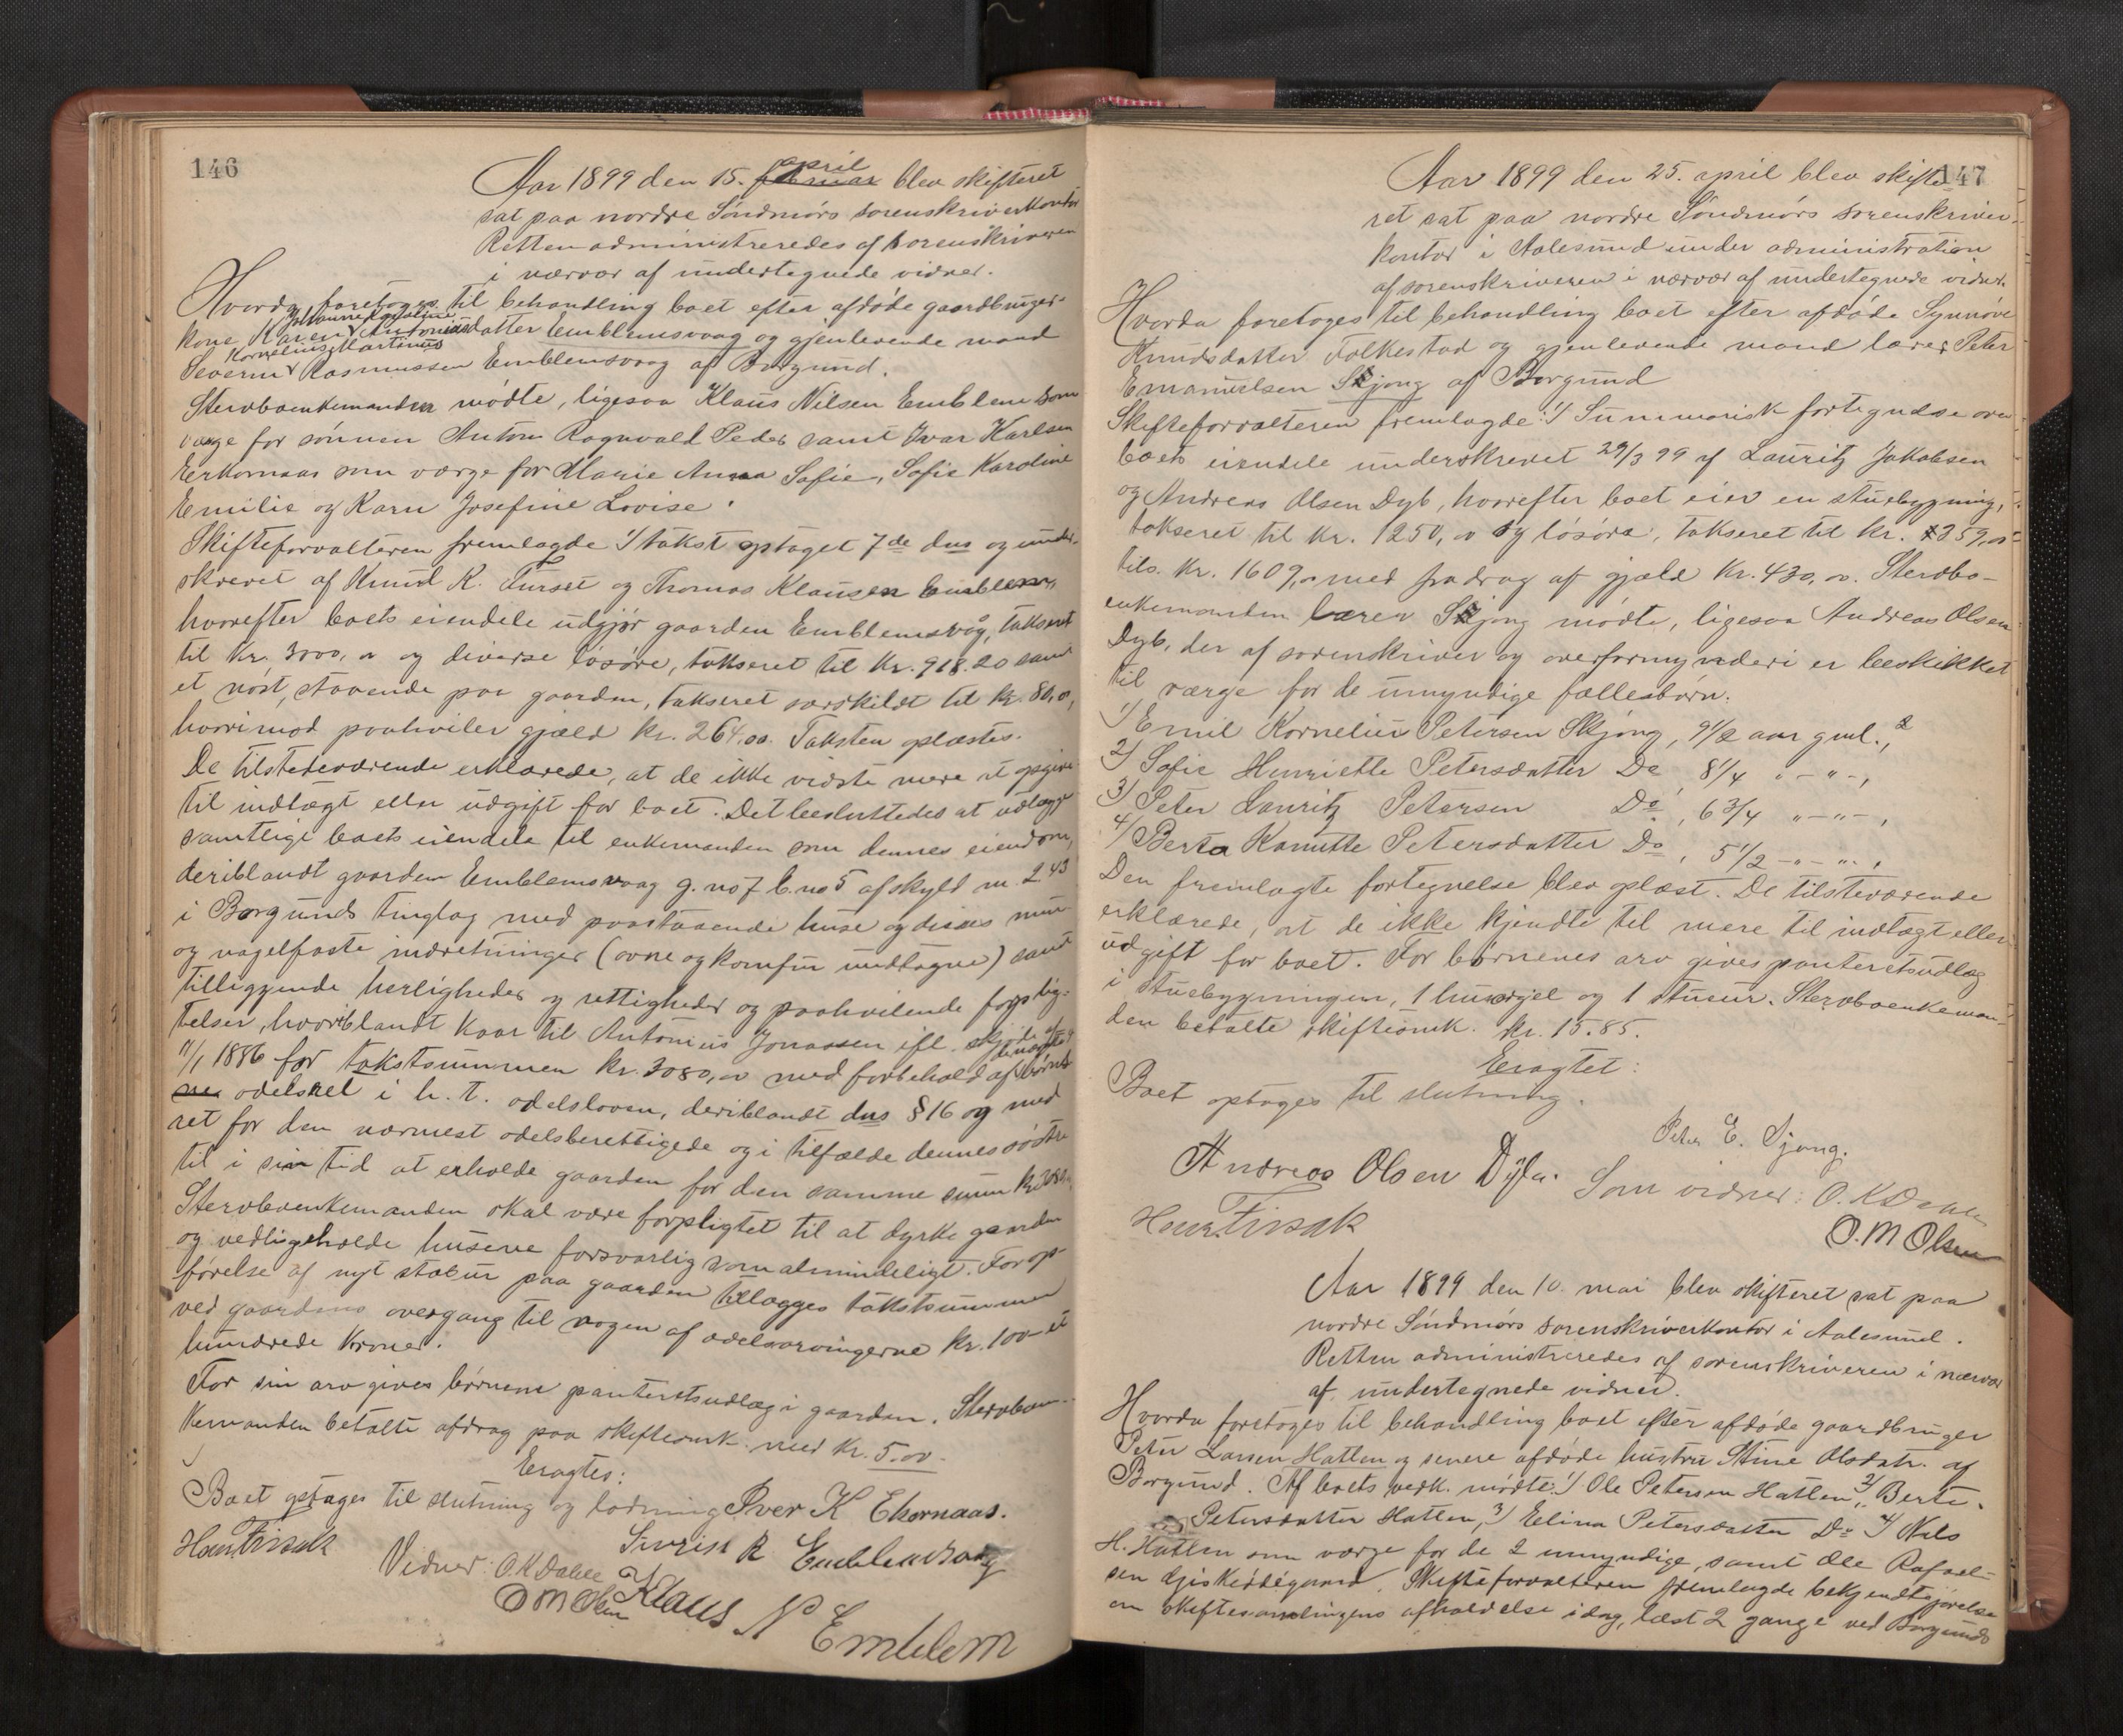 146
Aar 1899 den 15. februar april blev skifteret
sat paa nordre Søndmørs sorenskriverkontor
Retten administreredes af sorenskriveren
i nærvær af undertegnede vidner.
Hvorda foretoges til behandling boet efter afdøde gaardbruger-
Johanne
kone Karen Antoniusdatter Emblemsvaag og gjenlevende mand
Kornelius Martinus
Severin Rasmussen Emblemsvaag af Borgund.
Stervboenkemanden mødte, ligesaa Klaus Nilsen Emblem som
værge for sønnen Anton Ragnvald Peder samt Ivar Karlsen
Eerkornaas som værge for Marie Anna Sofie, Sofie Karoline
Emilie og Karn Josefine Lovise.
Skifteforvalteren fremlagde 1/ takst optaget 7de dns og under-
skrevet af Knud K. Furset og Thomas Klausen Emblem,
hvorefter boets eiendele udgjør gaarden Emblemsvåg, takseret
til kr. 3000,00 og diverse løsøre, takseret til kr. 918.20 samt
et nøst, staaende paa gaarden, takseret særskildt til kr. 80,00,
hvorimod paahviler gjæld kr. 264,00. Taksten oplæstes.
De tilstedeværende erklærede, at de ikke vidste mere at opgive
til indtægt eller udgift for boet. Det besluttedes at udlægge
samtlige boets eiendele til enkemanden som dennes eiendom,
deriblandt gaarden Emblemsvaag g. no 7 b. no 5 af skyld m. 2 43
i Borgunds tinglag med paastaaende huse og disses mur-
og nagelfaste indretninger (ovne og komfur undtagne) samt
tilliggende herligheder og rettigheder og paahvilende forplig-
telser, hvoriblandt kaar til Antonius Jonassen ifl. skjøde af
11/1 1886 for takstsummen kr. 3080,00 med forbehold af børne
nes odelsret i h. t. odelsloven, deriblandt dns § 16 og med
ret for den nærmest odelsberettigede og i tilfælde dennes søstre
til i sin tid at erholde gaarden for den samme sum kr. 3080,00.
Stervboenkemanden skal være forpligtet til at dyrke gaarden
og vedligeholde husene forsvarlig som almindeligt. For op-
førelse af nyt stabur paa gaarden tillægges takstsummen
ved gaardens overgang til nogen af odelsarvingerne kr. 100 – et
hundrede kroner.
For sin arv gives børnene panteretsudlæg i gaarden. Stervboen-
kemanden betalte afdrag paa skifteomk. med kr. 5.00.
Eragtes:
Boet optages til slutning og lodning Iver K Ekornaas.
Severin R Emblemsvaag
Vidner: O. K Dahle
O M Olsen Klaus N Emblem
147
Aar 1899 den 25. april blev skifte-
ret sat paa nordre Søndmørs sorenskriver-
kontor i Aalesund under administration
af sorenskriveren i nærvær af undertegnede vidner.
Hvorda foretoges til behandling boet efter afdøde Synnøve
Knudsdatter Folkestad og gjenlevende mand lærer Peter
Emanuelsen Skjong af Borgund
Skifteforvalteren fremlagde: 1/ Summarisk fortegnelse over
boets eiendele underskrevet 29/3 99 af Lauritz Jakobsen
og Andreas Olsen Dyb, hvorefter boet eier en stuebygning,
takseret til kr. 1250,00 og løsøre, takseret til kr. 359,00
tils. kr. 1609,00 med fradrag af gjæld kr. 430,00. Stervbo-
enkemanden lærer Skjong mødte, ligesaa Andreas Olsen
Dyb, der af sorenskriver og overformynderi er beskikket
til værge for de umyndige fællesbørn:
1) Emil Kornelius Petersen Skjong, 9 1/2 aar gml.,
2) Sofie Henriette Petersdatter Do, 8 1/4 " - " -,
3) Peter Lauritz Petersen Do, 6 3/4 " - " -,
4/ Berta Kamitte Petersdatter Do, 5 1/2 - " - " -.
Den fremlagte fortegnelse blev oplæst. De tilsteværende
erklærede, at de ikke kjendte til mere til indtægt eller
udgift for boet. For børnenes arv gives panteretsudlæg
i stuebygningen, 1 husorgel og 1 stueur. Stervboenkeman-
den betalte skifteomk. kr. 15.85.
Eragtet:
Boet optages til slutning.
Peter E. Sjong.
Andreas Olsen Dyb. Som vidner: O. K Dahle
O. M Olsen
Aar 1899 den 10. mai blev skifteret sat paa
nordre Søndmørs sorenskriverkontor i Aalesund.
Retten administreredes af sorenskriveren i nærvær
af undertegnede vidner.
Hvorda foretoges til behandling boet efter afdøde gaardbruger
Peter Larsen Hatlen og senere afdøde hustru Stine Olsdatr. af
Borgund. Af boets vedk. mødte: 1/ Ole Petersen Hatlen, 2/ Berte
Petersdatter Hatlen, 3/ Elina Petersdatter Do 4/ Nils
H. Hatlen som værge for de 2 umyndige, samt Ole Rafael-
sen Gjiskeødegaard. Skifteforvalteren fremlagde bekjendtgjørelse
om skiftesamlingens afholdelse idag, læst 2 gange ved Borgunds